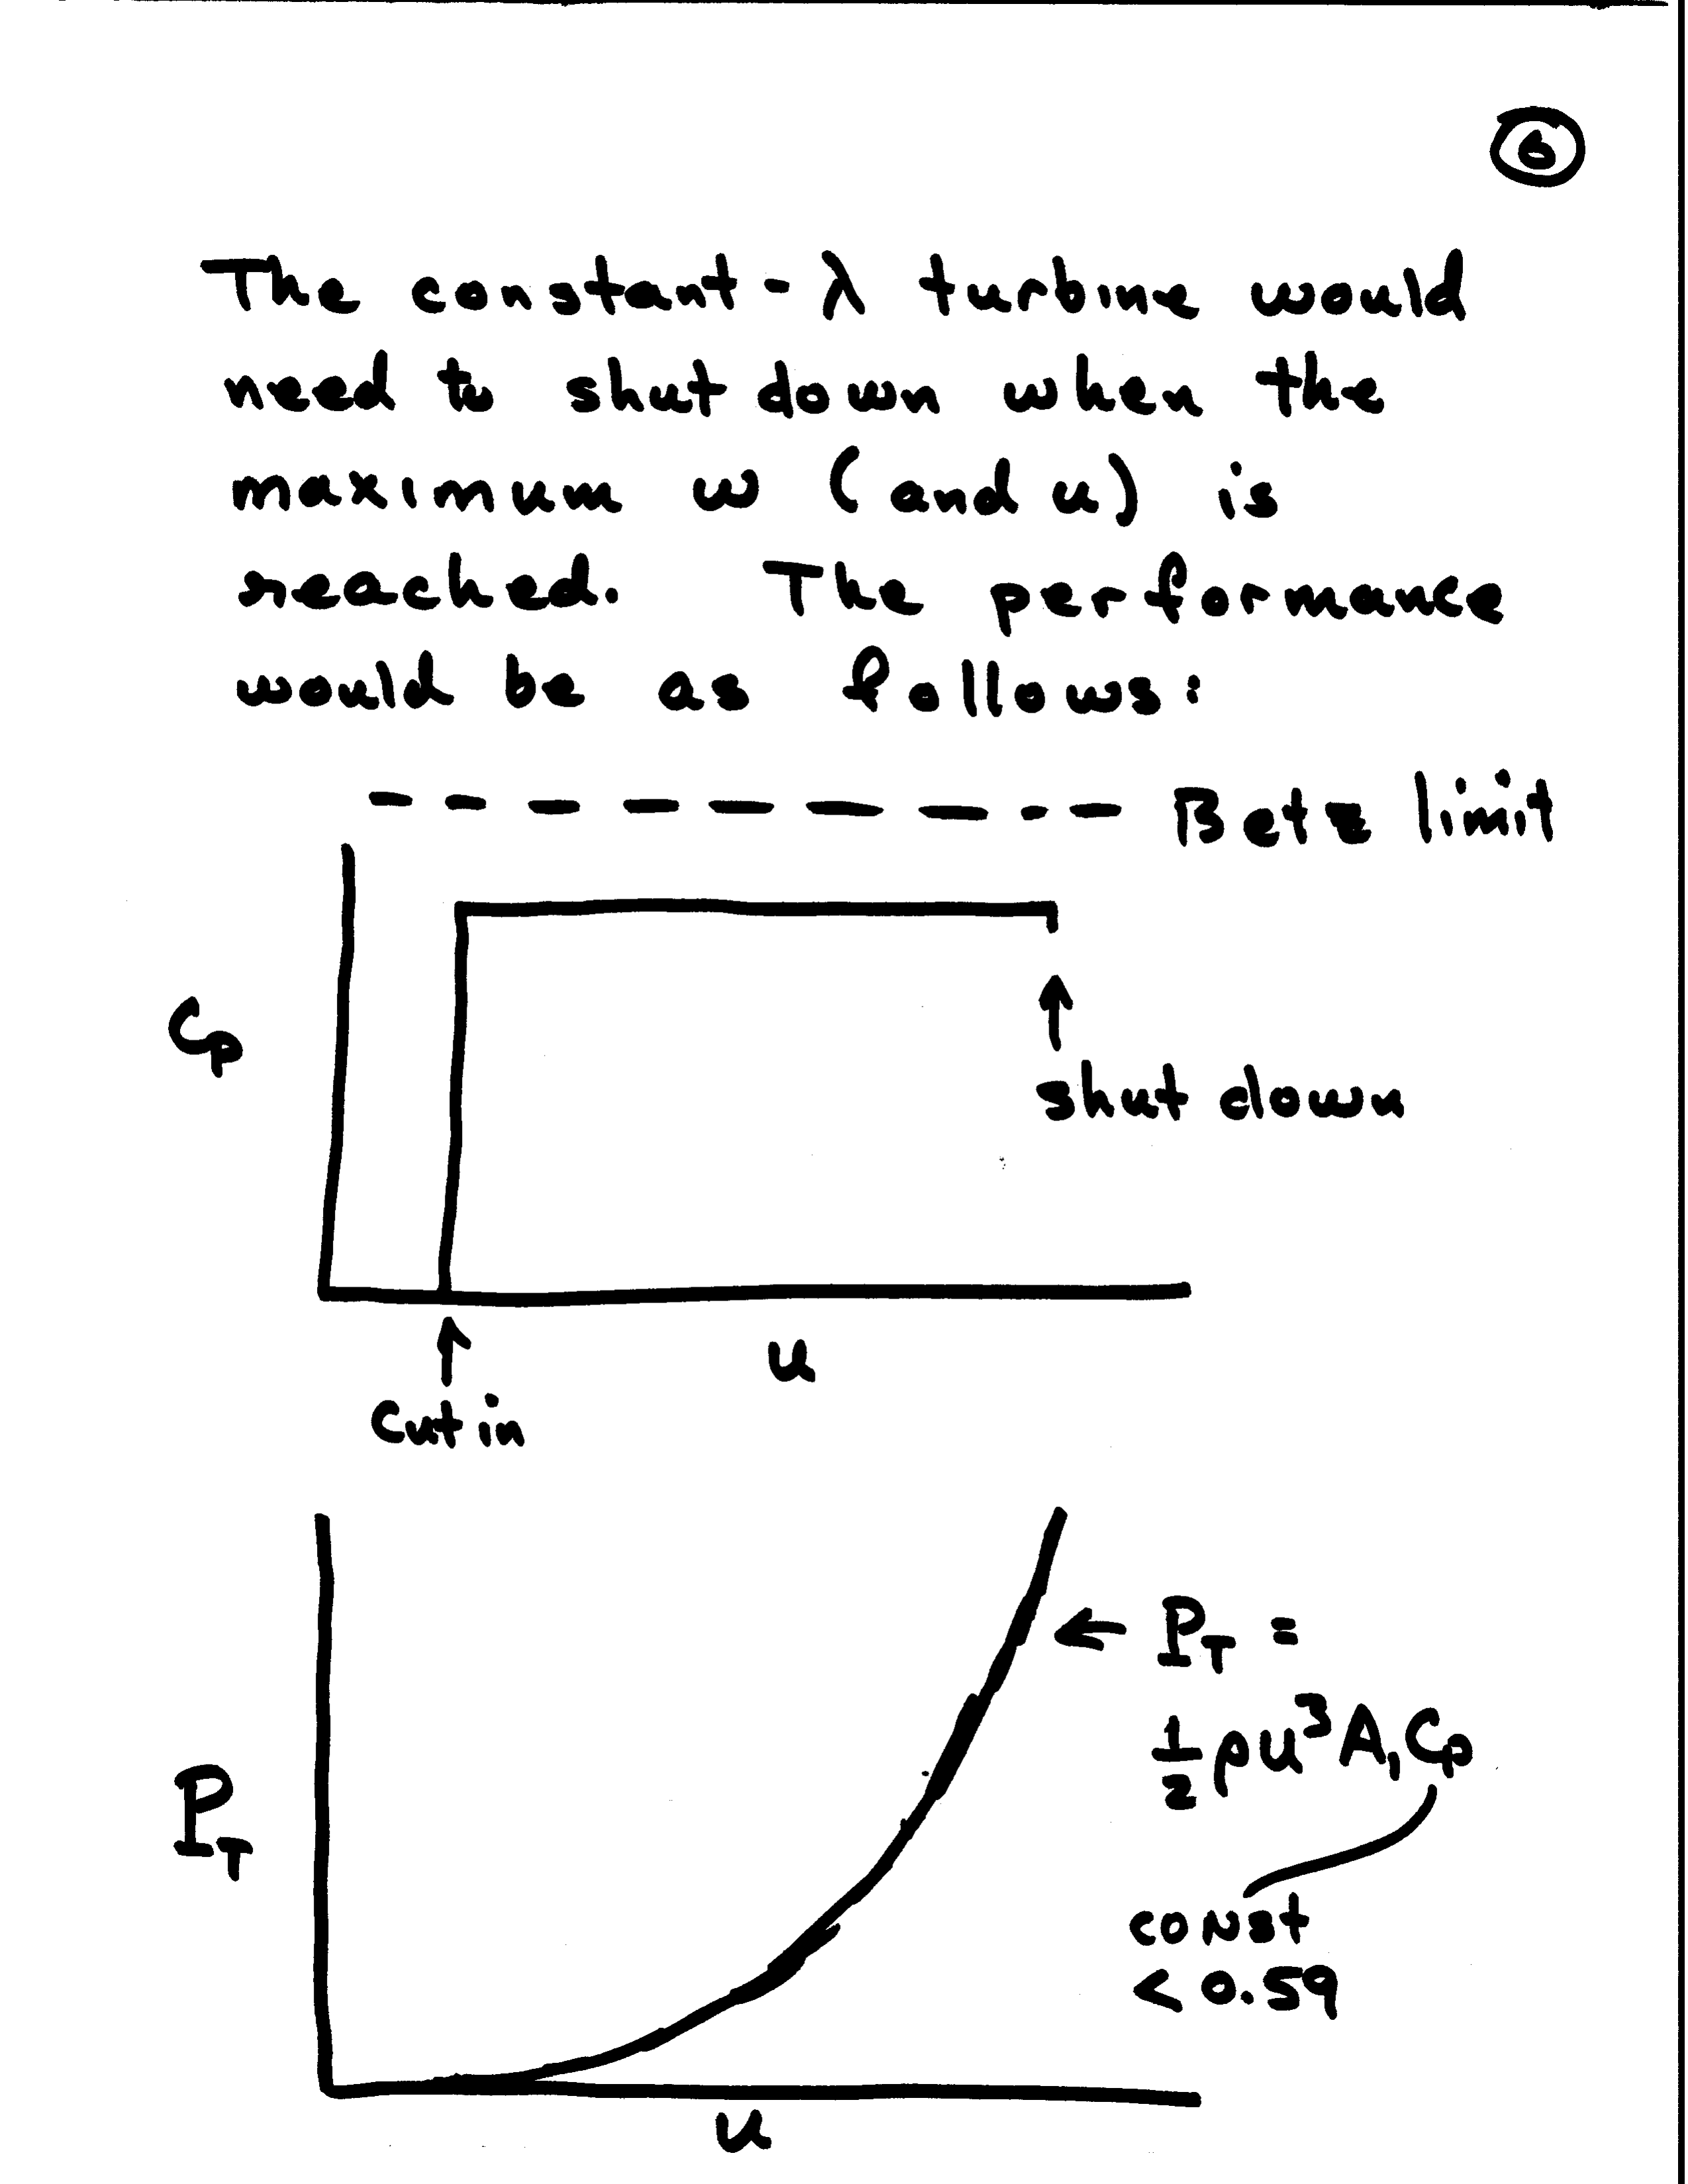 6
The constant-λ turbine would
need to shut down when the
maximum ω (and u) is
reached. The performance
would be as follows:
Betz limit
Cp
shut down
u
Cut in
P_T =
½ρu³A₁Cp
P_T
const
< 0.59
u